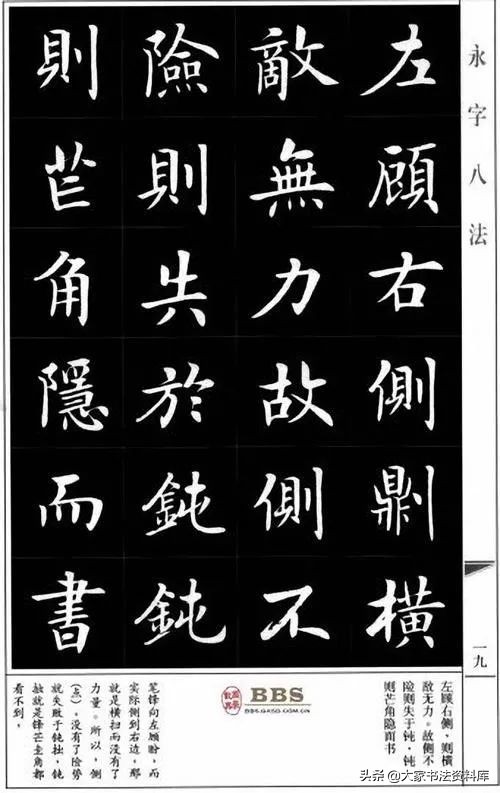 永字八法
一九
左顧右側則橫
敵無力故側不
險則失於鈍鈍
則芒角隱而書
左顾右侧，则横
敌无力。故侧不
险则失于钝，钝
则芒角隐而书
BBS
笔锋向左顾盼，而
实际侧到右边，那
就是横扫而没有了
力量。所以，侧
（点），没有了险势
就失败于钝拙，钝
拙就是锋芒圭角都
看不到，
头条 @大家书法资料库